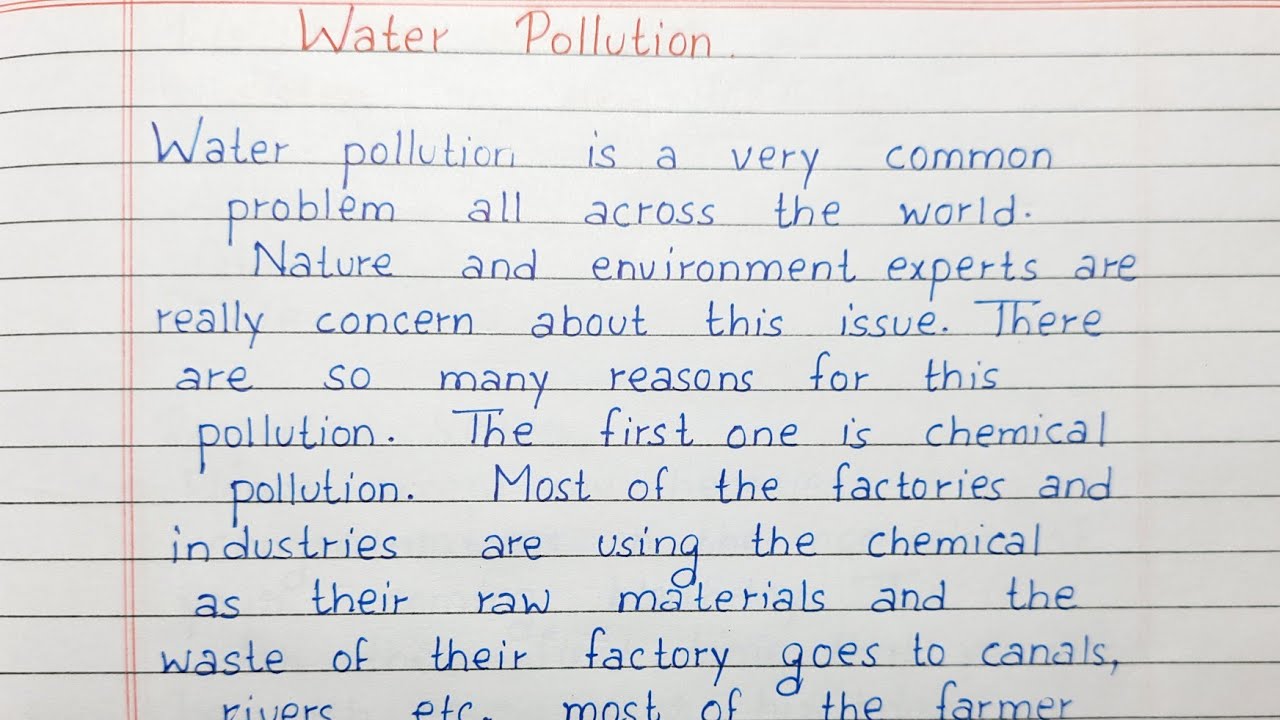 Water Pollution.
Water pollution is a very common
problem all across the world.
Nature and environment experts are
really concern about this issue. There
are so many reasons for this
pollution. The first one is chemical
pollution. Most of the factories and
industries are using the chemical
as their raw materials and the
waste of their factory goes to canals,
rivers etc. most of the farmer